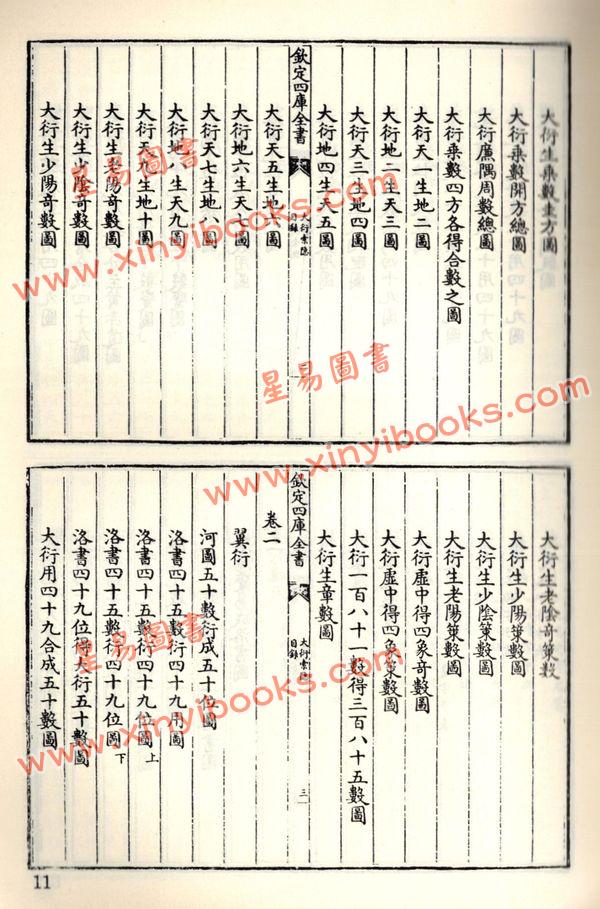 大衍生乘數生方圖
大衍乘數開方總圖
大衍廉隅周數總圖
大衍乘數四方各得合數之圖
大衍天一生地二圖
大衍地二生天三圖
大衍天三生地四圖
大衍地四生天五圖
欽定四庫全書
大衍索隱
目錄
二
大衍天五生地六圖
大衍地六生天七圖
大衍天七生地八圖
大衍地八生天九圖
大衍天九生地十圖
大衍生老陽奇數圖
大衍生少陰奇數圖
大衍生少陽奇數圖
大衍生老陰奇策數
大衍生少陽策數圖
大衍生少陰策數圖
大衍生老陽策數圖
大衍虛中得四象奇數圖
大衍虛中得四象策數圖
大衍一百八十一數得三百八十五數圖
大衍生章數圖
欽定四庫全書
大衍索隱
目錄
三
卷二
翼衍
河圖五十數衍成五十位圖
洛書四十五數衍四十九用圖
洛書四十五數衍四十九位圖上
洛書四十五數衍四十九位圖下
洛書四十九位得大衍五十數圖
大衍用四十九合成五十數圖
11
星易圖書
www.xinyibooks.com
星易圖書
www.xinyibooks.com
星易圖書
www.xinyibooks.com